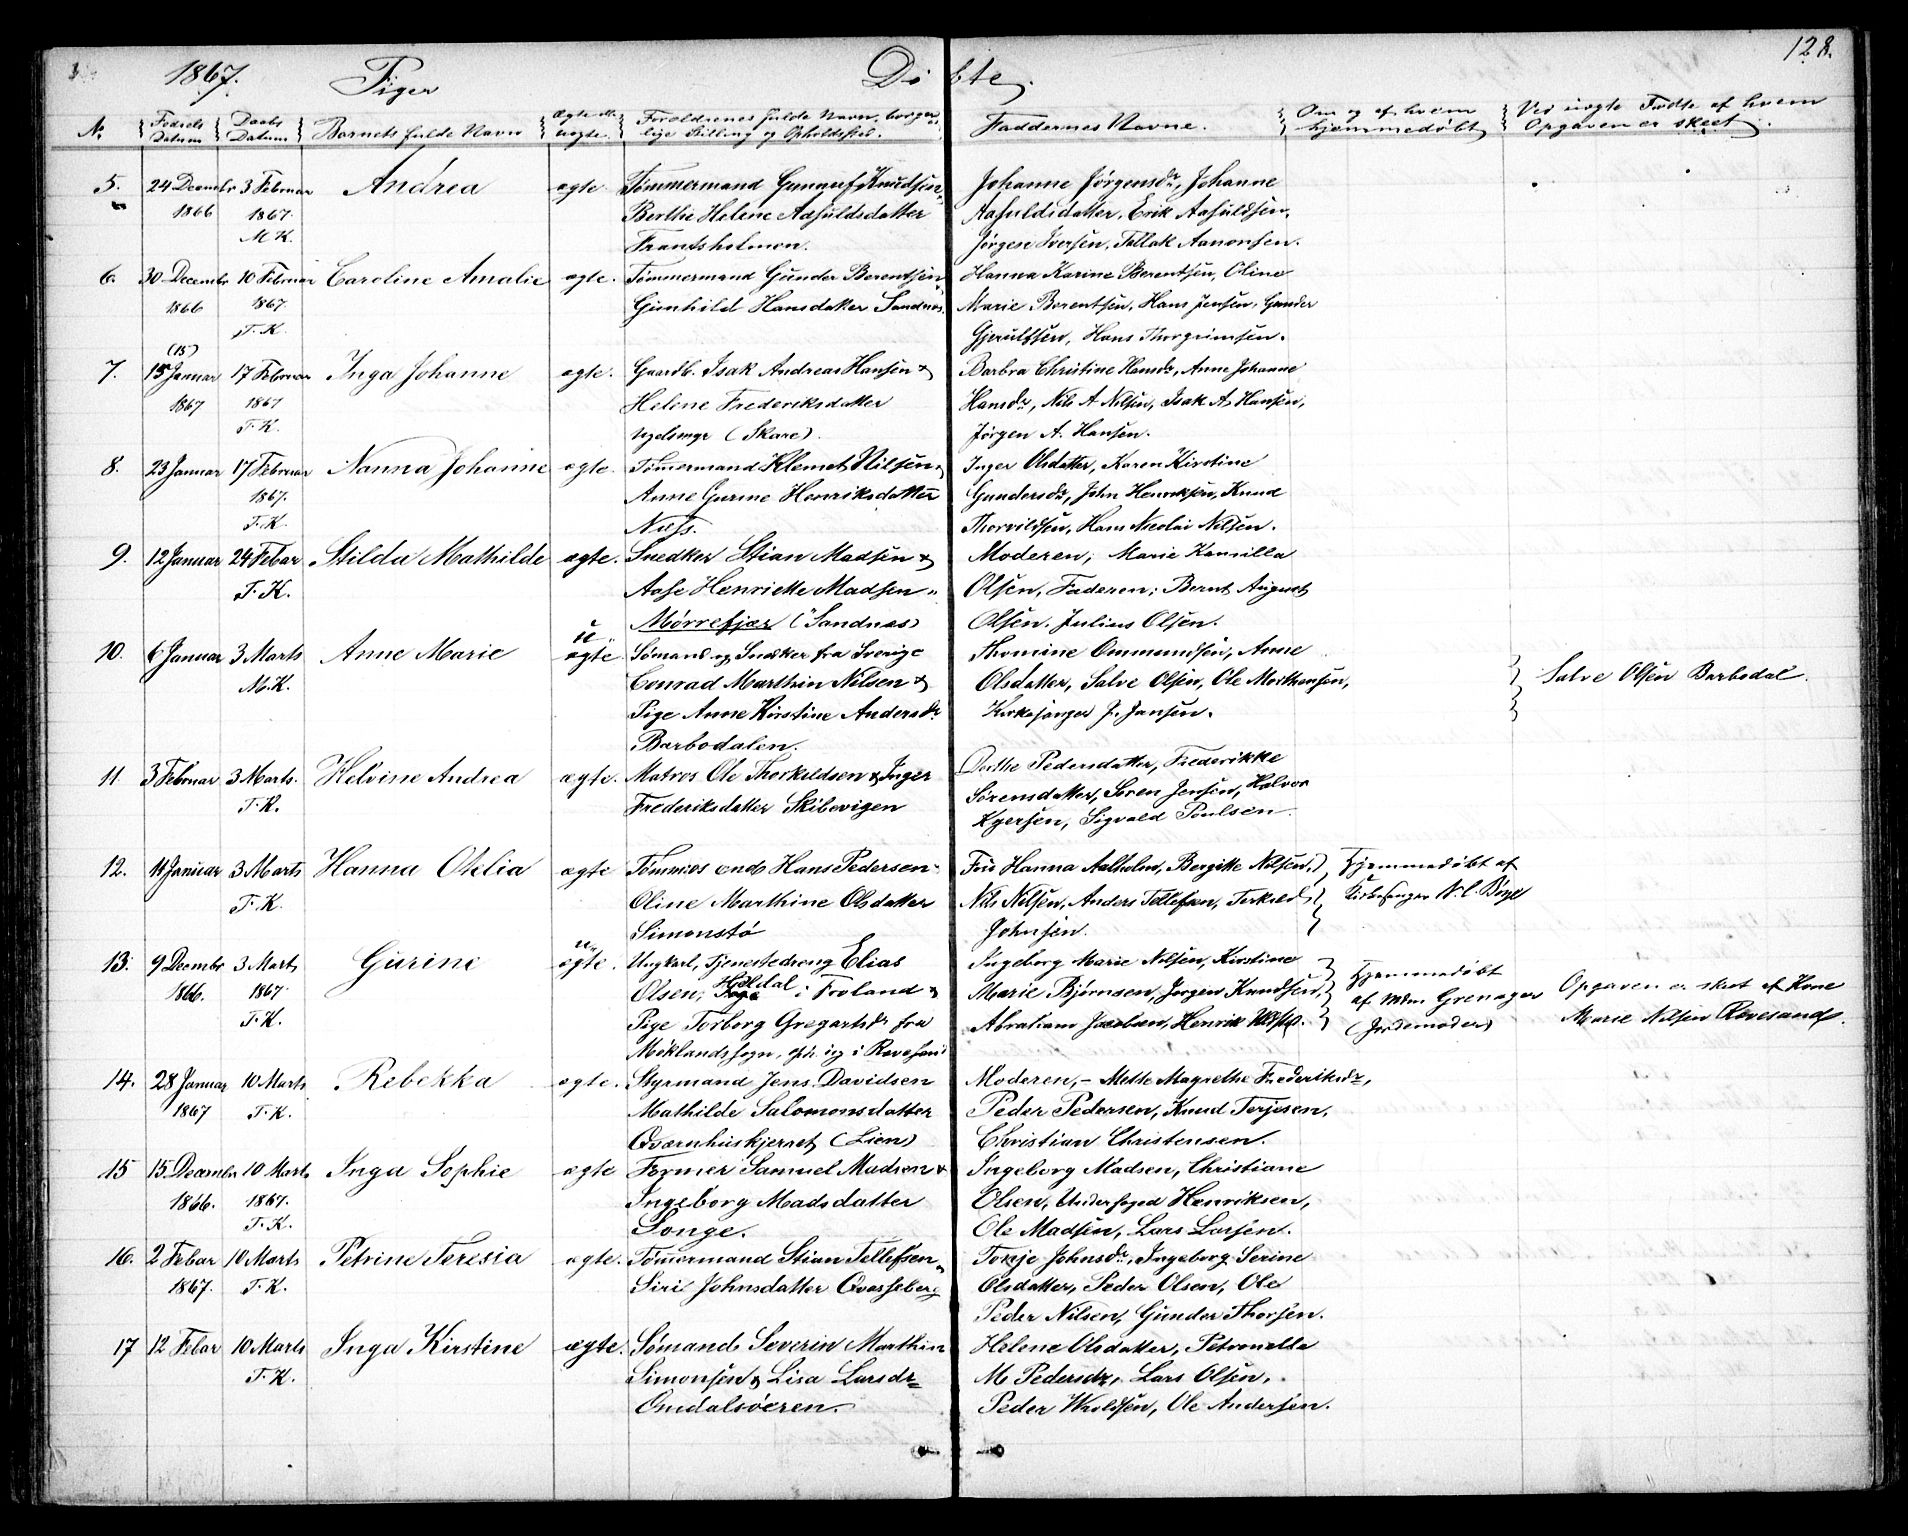 1867. Piger Dø bte. 128.
No Fødsels Datum Daabs Datum Barnets fulde Navn Ægte ell. uægte. Forældrenes fulde Navn, borger- lige Stilling og Opholdssted. Faddernes Navne. Om og af hvem hjemmedøbt Ved uægte Fødte af hvem Opgaven er skeet.
5. 24 Decembr 3 Februar Andrea ægte. Tømmermand Gunnuf Knudsen Johanne Jørgensdr, Johanne
1866 1867. Berthe Helene Aasuldsdatter Aasuldsdatter, Erik Aasuldsen,
M.K. Frantsholmen. Jørgen Iversen, Tellak Aanonsen.
6. 30 Decembr 10 Februar Caroline Amalie ægte. Tømmermand Gunder Berentsen Hanna Karine Berentsen, Oline
1866 1867. Gunhild Hansdatter Sandnæs. Marie Berentsen, Hans Jensen, Gunder
T.K. Gjerulfsen, Hans Thorgrimsen.
(15)
7. 15 Januar 17 Februar Inga Johanne ægte. Gaardb. Isak Andreas Hansen & Barbra Christine Hansdr, Anne Johanne
1867 1867 Helene Frederiksdatter Hansdr, Nils A Nilsen, Isak A. Hansen,
T.K. (Skare). Jørgen A. Hansen.
8. 23 Januar 17 Februar Nanna Johanne ægte. Tømermand Klemet Nilsen Inger Olsdatter, Karen Kirstine
1867. Anne Gurine Henriksdatter Gundersdr, John Henriksen, Knud
T.K. Næss. Thorvildsen, Hans Nicolai Nilsen.
9. 12 Januar 24 Febar Stilda Mathilde ægte. Snedker Stian Madsen & Moderen, Marie Kamilla
T.K. Aase Henriette Madsen Olsen, Faderen; Bernt August
Mørrefjær (Sandnæs) Olsen, Julius Olsen.
10. 6 Januar 3 Marts Anne Marie u ægte Sømand og Snedker fra Sverige Thomine Ommundsen, Anne
M.K. Conrad Marthin Nilsen & Olsdatter, Salve Olsen, Ole Morthensen, Salve Olsen Barbodal.
Pige Anne Kirstine Andersdr Kirkesanger J. Jansen.
Barbodalen.
11 3 Februar 3 Marts. Helvine Andrea ægte. Matros Ole Thorkildsen & Inger Dorthe Pedersdatter, Frederikke
T.K. Frederiksdatter Skibevigen Sørensdatter, Søren Jensen, Halvor
Sigvald Poulsen.
12. 11 Januar 3 Marts Hanna Otelia ægte Tømmermand Hans Pedersen Fru Hanna Aalholm, Bergitte Nilsen, Hjemmedøbt af
T.K. Oline Marthine Olsdatter Nils Nilsen, Anders Tellefsen, Terkild Kirkesanger N. C. Bøye
Simonstø Johnsen.
13. 9 Decembr 3 Marts Gurine u ægte. Ungkarl, Tjenestedreng Elias Ingeborg Marie Nilsen, Kirstine Hjemmedøbt
1866. 1867. Olsen, i Froland & Marie Bjørnsen, Jørgen Knudsen, af Mdm. Grenager Opgaven er skeet af Kone
T.K. Pige Torborg Gregartsdr fra Abraham Jacobsen, Henrik (Jordemoder) Marie Nilsen Revesand.
Møklands sogn, oph. sig i Revesand
14. 28 Januar 10 Marts Rebekka ægte. Styrmand Jens Davidsen Moderen, – Mette Magrethe Frederiksdr,
1867 T.K. Mathilde Salomonsdatter Peder Pedersen, Knud Terjesen,
Qværnhuskjerret (Lien) Christian Christensen.
15 15 Decembr 10 Marts Inga Sophie ægte Former Samuel Madsen & Ingeborg Madsen, Christiane
1866. 1867. Ingeborg Madsdatter Olsen, Underfoged Henriksen,
T.K. Songe. Ole Madsen, Lars Larsen.
16. 2 Febar 10 Marts Petrine Teresia ægte. Tømermand Stian Tellefsen Tomje Johnsdr, Ingeborg Serine
1867. T.K. Siri Johnsdatter Qvasseberg Olsdatter, Peder Olsen, Ole
Peder Nilsen, Gunder Thorsen.
17 12 Febar 10 Marts Inga Kirstine ægte. Sømand Severin Marthin Helene Olsdatter, Petronelle
T.K. Simonsen & Lisa Larsdr M. Pedersdr, Lars Olsen,
Omdalsøeren. Peder Wroldsen, Ole Andersen.